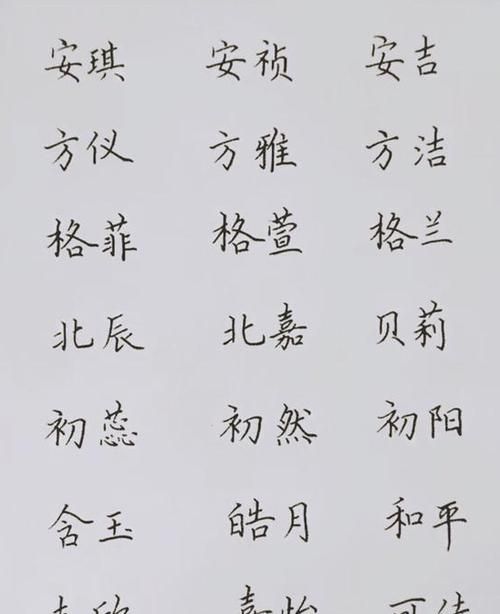 安琪 安祯 安吉
方仪 方雅 方洁
格菲 格萱 格兰
北辰 北嘉 贝莉
初蕊 初然 初阳
含玉 皓月 和平
嘉怡